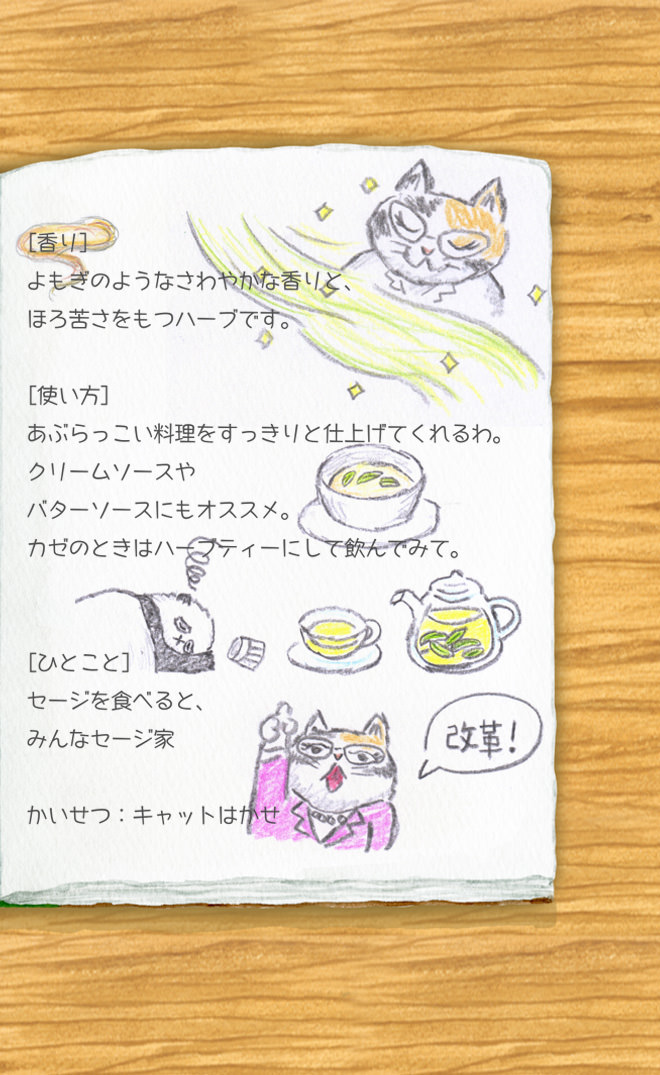 [香り]
よもぎのようなさわやかな香りと、
ほろ苦さをもつハーブです。
[使い方]
あぶらっこい料理をすっきりと仕上げてくれるわ。
クリームソースや
バターソースにもオススメ。
カゼのときはハーブティーにして飲んでみて。
[ひとこと]
セージを食べると、
みんなセージ家
改革！
かいせつ：キャットはかせ